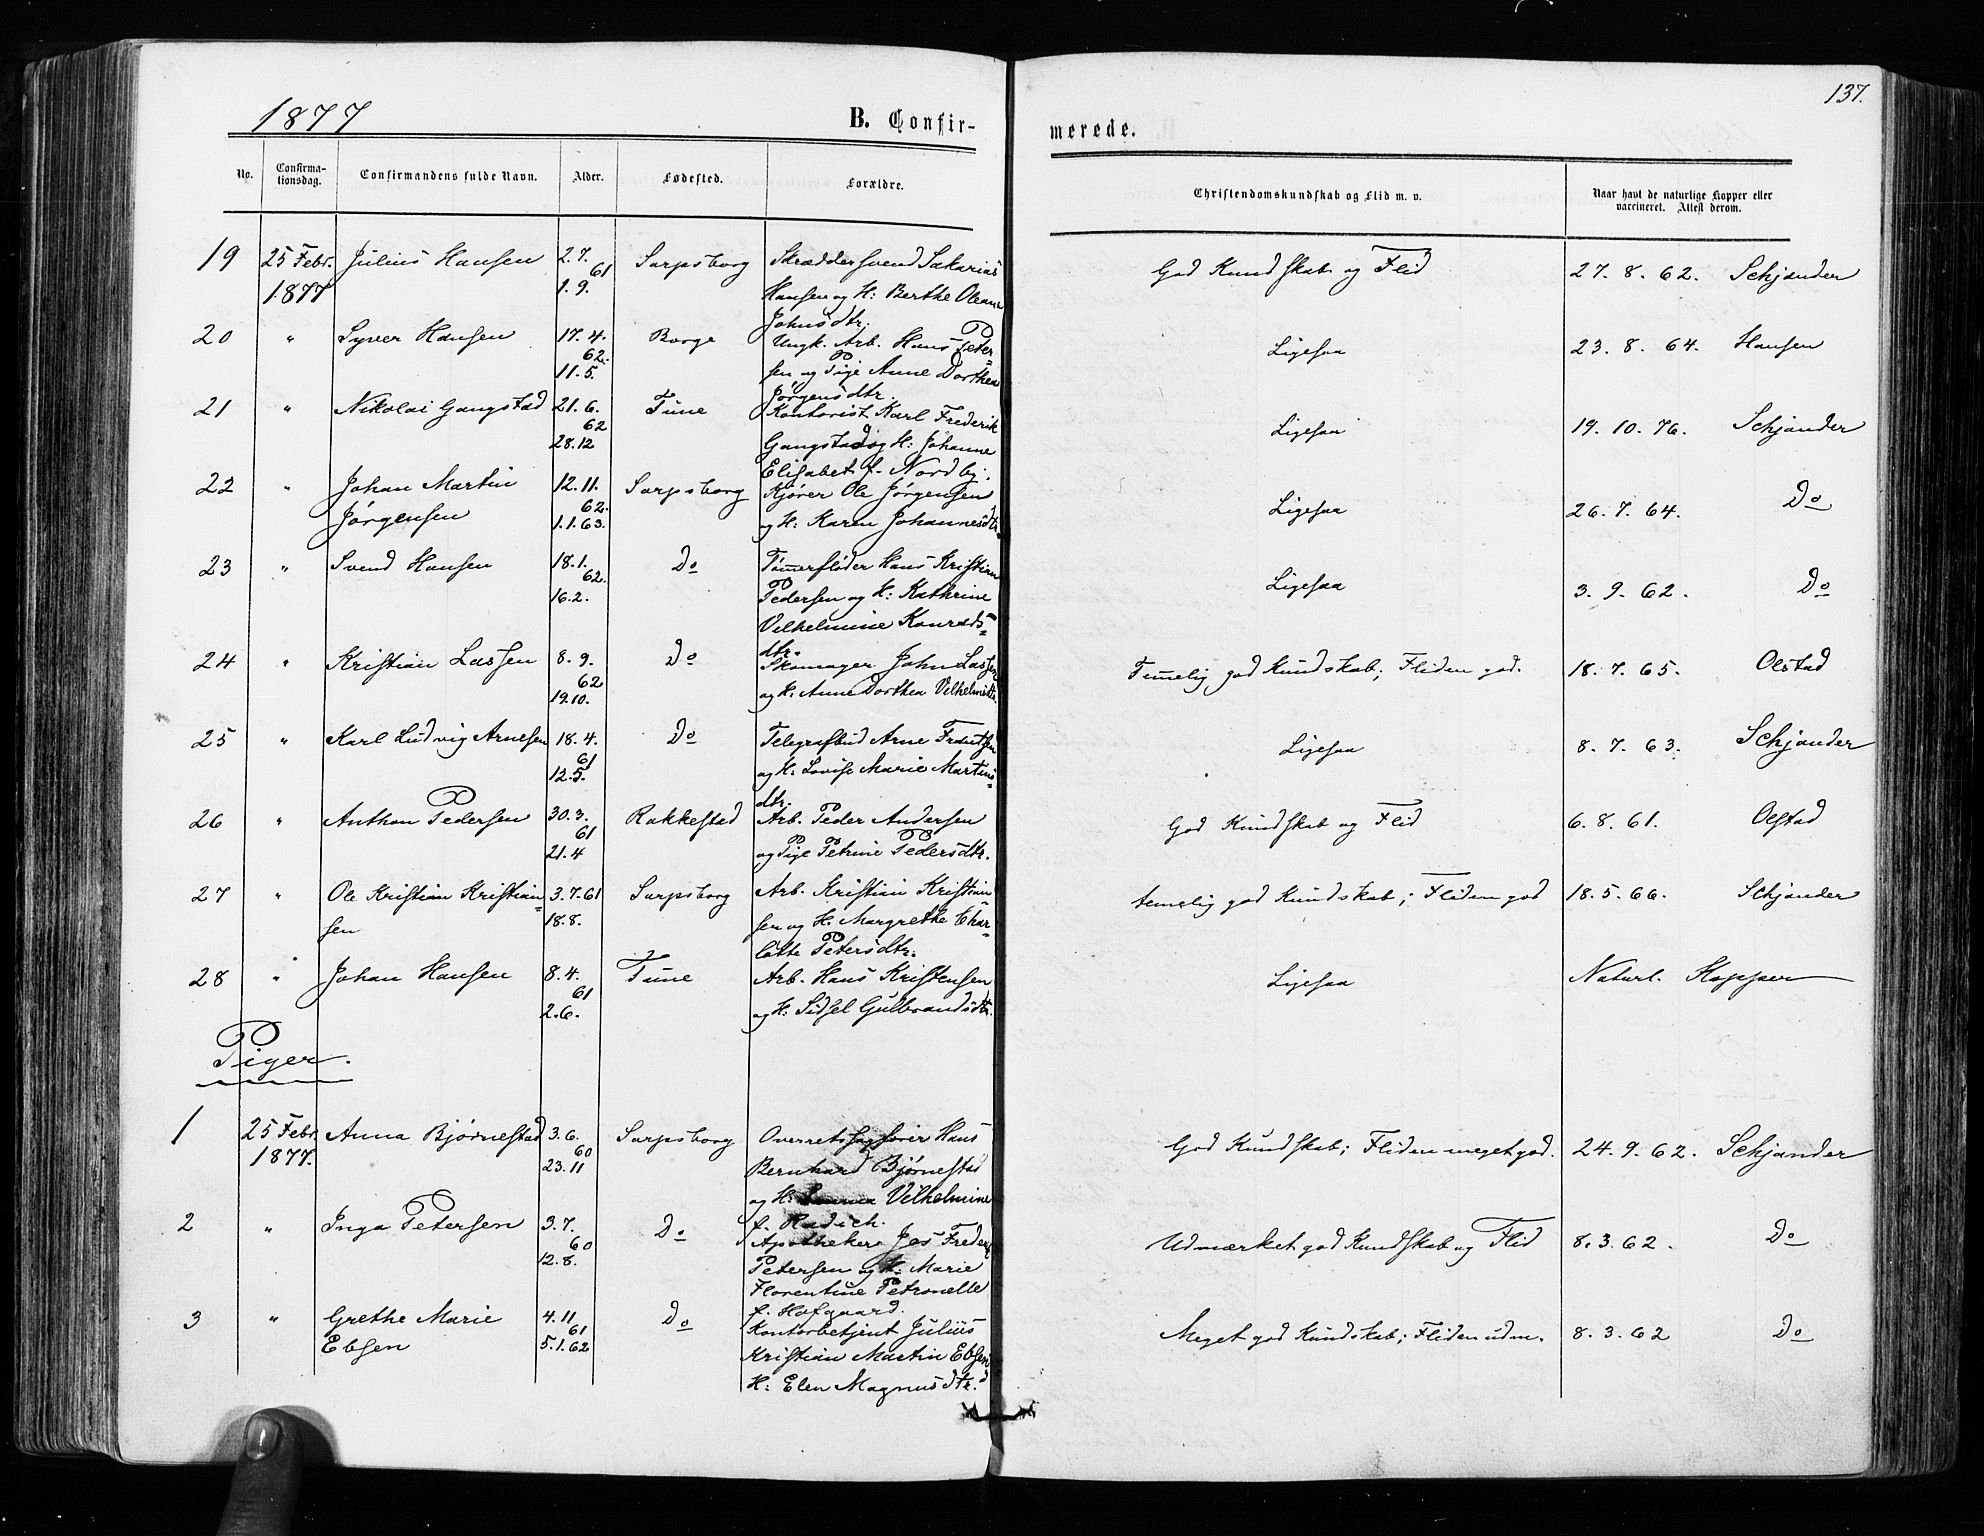 137.
1877
B. Confir-
merede.
No.
Confirma-
tionsdag.
Confirmandens fulde Navn.
Alder.
Fødested.
Forældre.
Christendomskundskab og Flid m. v.
Naar havt de naturlige Kopper eller
vaccineret. Attest derom.
19 25 Febr. Julius Hansen 2.7. Sarpsborg Skræddersvend Sakarias God Kundskab og Flid 27. 8. 62. Schjander
1877 61 1.9. Hansen og H: Berthe Oleane
Johnsdtr.
20 " Syver Hansen 17.4. Borge Ungk. Arb. Hans Peter- Ligesaa 23. 8. 64. Hansen
62. 11.5. sen og Pige Anne Dorthea
Jørgensdtr.
21 " Nikolai Gangstad 21.6. Tune Kontorist Karl Frederik Ligesaa 19. 10. 76. Schjander
62 28.12 Gangstad og H: Johanne
Elisabet f. Nordby.
22 " Johan Martin 12.11. Sarpsborg Kjører Ole Jørgensen Ligesaa 26. 7. 64. Do
Jørgensen 62. 1.1.63. og H: Karen Johannesdtr.
23 " Svend Hansen 18.1. Do Tømerfløder Hans Kristian Ligesaa 3. 9. 62. Do
62. 16.2. Pedersen og H: Kathrine
Vilhelmine Konrads=
dtr.
24 " Kristian Lassen 8.9. Do Skomager John Lassen Temelig god Kundskab; Fliden god. 18. 7. 65. Olstad
62 19.10. og H: Anne Dorthea Vilhelmsdtr.
25 " Karl Ludvig Arnesen 18.4. Do Telegrafbud Arne Ligesaa 8. 7. 63. Schjander
61 12.5. og H: Lovise Marie Martins=
dtr.
26 " Anthon Pedersen 30.3. Rakkestad Arb. Peder Andersen God Kundskab og Flid 6. 8. 61. Olstad
61 21.4 og Pige Petrine Pedersdtr.
27 " Ole Kristian Kristian= 3.7.61 Sarpsborg Arb. Kristian Kristian= temelig god Kundskab; Fliden god 18. 5. 66. Schjander
sen 18.8. sen og H. Margrethe Char=
lotte Petersdtr.
28 " Johan Hansen 8.4. Tune Arb. Hans Kristensen Ligesaa Naturl. Kopper
61 2.6. og H: Sidsel Gulbrandsdtr.
Piger.
1 25 Febr. Anna Bjørnestad 3.6. Sarpsborg Overretssagfører Hans God Kundskab; Fliden meget god. 24. 9. 62. Schjander
1877. 60 23.11 Bernhard Bjørnestad
og H: Vilhelmine
f. Radich.
2 " Inga Petersen 3.7. Do Apotheker Jes Frederik Udmærket god Kundskab og Flid 8. 3. 62. Do
60 12.8. Petersen og H: Marie
Florentine Petronelle
f. Hofgaard.
3 " Grethe Marie 4.11 Do Kontorbetjent Julius Meget god Kundskab; Fliden udm. 8. 3. 62 Do
Ebsen 61 5.1.62 Kristian Martin Ebsen
H: Elen Magnusdtr.